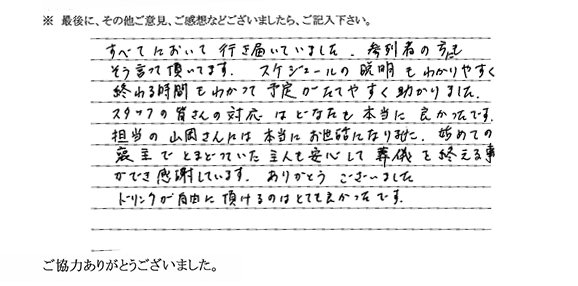 ※ 最後に、その他ご意見、ご感想などございましたら、ご記入下さい。
すべてにおいて 行き届いていました。参列者の方にも
そう言って頂いてます。 スケジュールの説明もわかりやすく
終わる時間もわかって予定がたてやすく助かりました。
スタッフの皆さんの対応はどなたも本当に良かったです。
担当の山岡さんには本当にお世話になりました。始めての
喪主でとまどっていた主人も安心して葬儀を終える事
ができ感謝しています。ありがとうございました
ドリンクが自由に頂けるのはとても良かったです。
ご協力ありがとうございました。